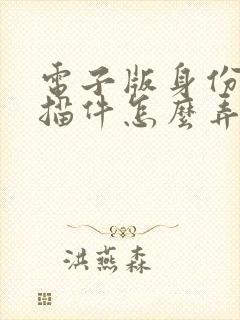 電子版身份
描件怎麼弄
洪燕森